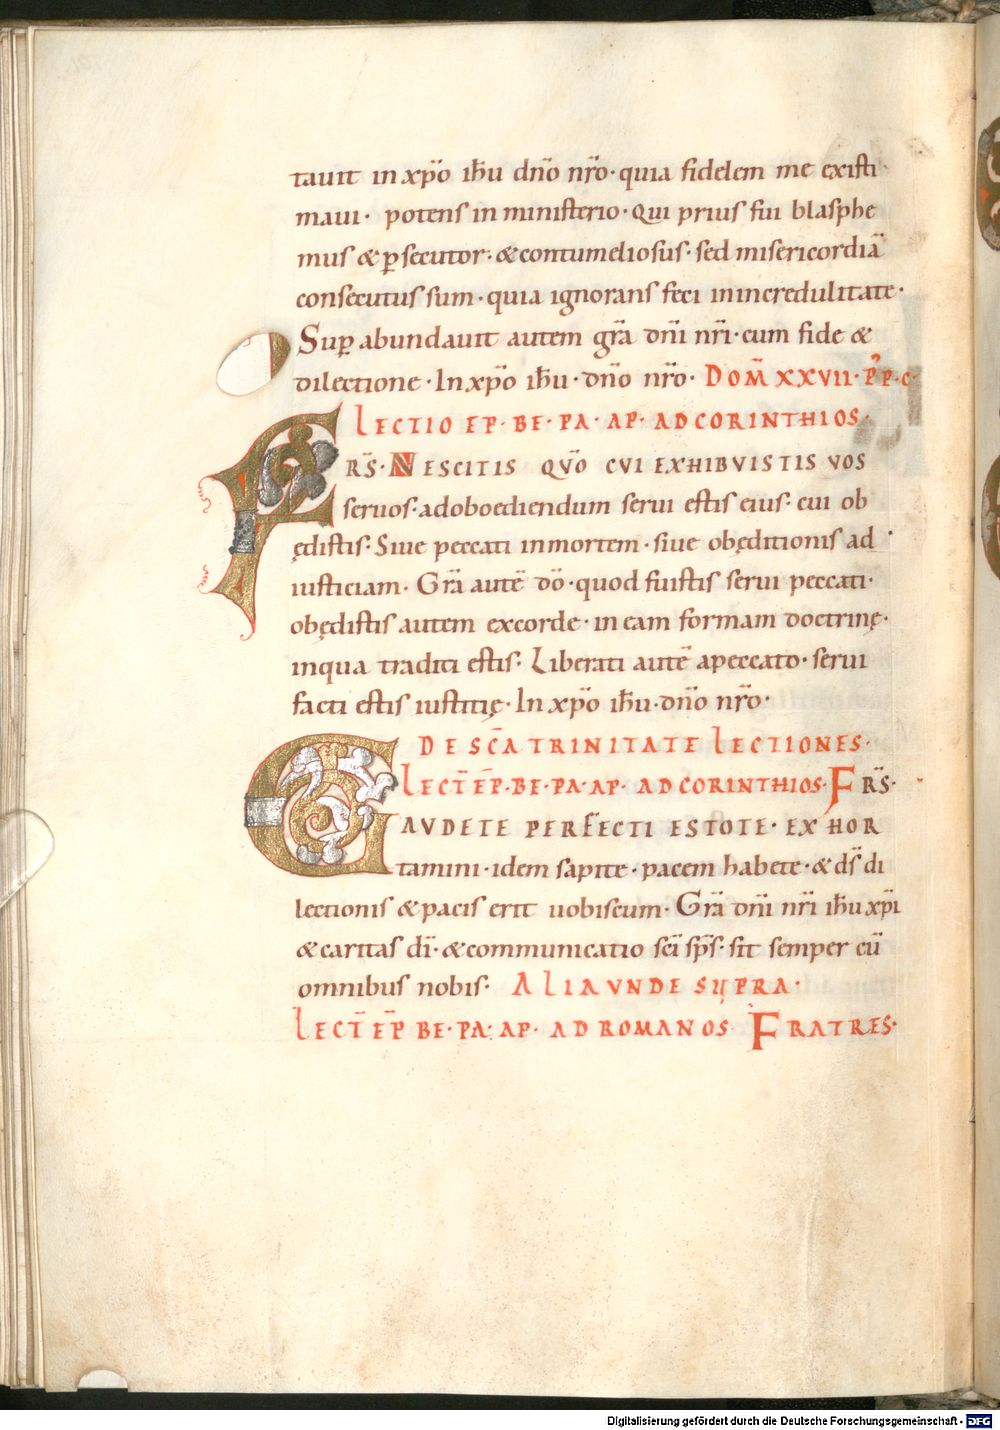 tauit in xp̄o ih̄u dn̄o nr̄o· quia fidelem me existi·
maui· potens in ministerio· Qui prius fui blasphe
mus & ꝑsecutor· & contumeliosus· sed misericordiā
consecutus sum· quia ignorans feci in incredulitate·
Suꝑabundauit autem gr̄a dn̄i nr̄i· cum fide &
dilectione· In xp̄o ih̄u· dn̄o nr̄o· DOM̄ XXVII· P̄P·C·
LECTIO EP̄· BE· PA· AP· AD CORINTHIOS·
FRS̄· NESCITIS QUŌ CVI EXHIBVISTIS VOS
seruos· ad oboediendum serui estis eius· cui ob
ędistis· Siue peccati in mortem· siue obęditionis ad
iusticiam· Gr̄a autē dō· quod fuistis serui peccati·
obędistis autem ex corde· in eam formam doctrinę·
in qua traditi estis· Liberati autē a peccato· serui
facti estis iustitię· In xp̄o ih̄u· dn̄o nr̄o·
DE SC̄A TRINITATE LECTIONES·
LECT̄ EP̄· BE· PA· AP· AD CORINTHIOS· FRS̄·
GAVDETE PERFECTI ESTOTE· EXHOR
tamini· idem sapite· pacem habete· & ds̄ di
lectionis & pacis erit uobiscum· Gr̄a dn̄i nr̄i ih̄u xp̄i
& caritas dī· & communicatio sc̄i sp̄s· sit semper cū
omnibus nobis· ALIA VNDE SUPRA·
LECT̄ EP̄ BE· PA· AP· AD ROMANOS FRATRES·
Digitalisierung gefördert durch die Deutsche Forschungsgemeinschaft - DFG